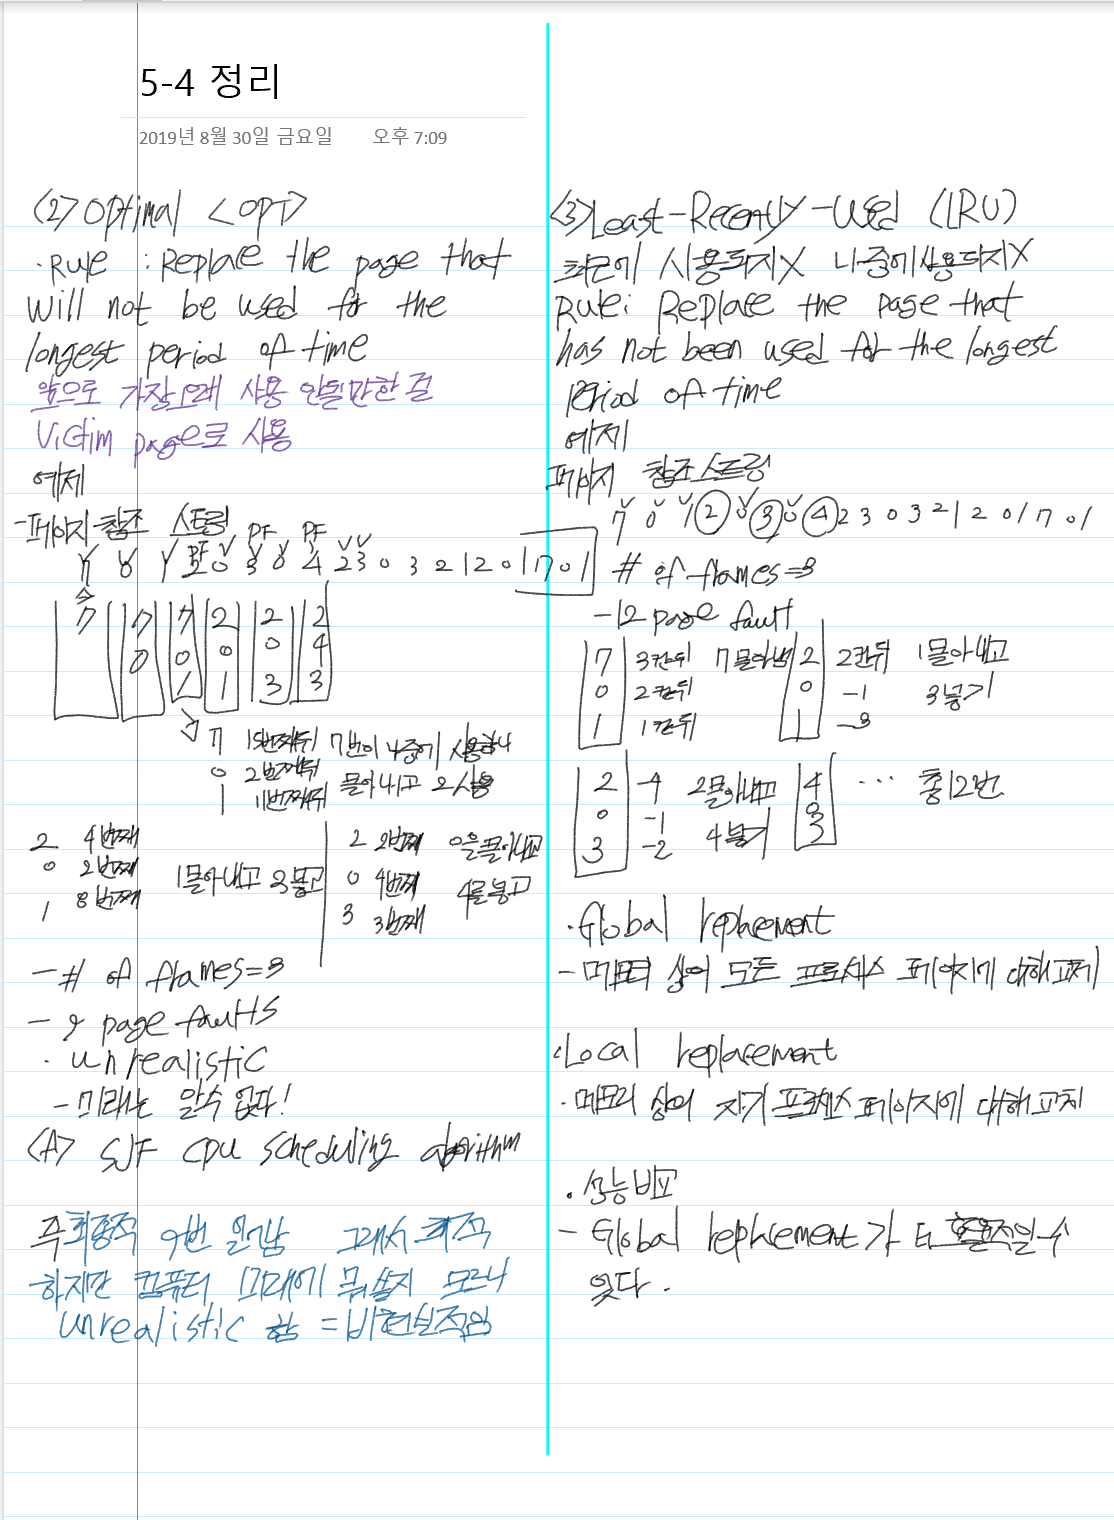 5-4 정리
2019년 8월 30일 금요일 오후 7:09
<2> Optimal <OPT>
· Rule : Replace the page that
will not be used for the
longest period of time
앞으로 가장 오래 사용 안될만한 걸
Victim page로 사용
예제
- 페이지 참조 스트링
PF PF
7 0 1 2 0 3 0 4 2 3 0 3 2 1 2 0 1 7 0 1
7
7 0
7 0 1
2 0 1
2 0 3
2 4 3
7 15번째뒤 7번이 나중에 사용하니
0 2번째뒤 몰아내고 2 사용
1 11번째뒤
2 4번째
0 2번째 1 몰아내고 3 넣고
1 8번째
2 2번째 0을 몰아내고
0 4번째 4를 넣고
3 3번째
- # of frames=3
- 9 page faults
· unrealistic
- 미래는 알수 없다!
<A> SJF CPU scheduling algorithm
즉 최종적 9번 일어남 그래서 최적
하지만 컴퓨터 미래에 뭐쓸지 모르니
unrealistic 함 = 비현실적임
<3> Least-Recently-Used (LRU)
최근에 사용되지X 나중에 사용되지X
Rule: Replace the page that
has not been used for the longest
period of time
예제
페이지 참조 스트링
7 0 1 2 0 3 0 4 2 3 0 3 2 1 2 0 1 7 0 1
# of frames=3
- 12 page fault
7 3칸뒤 7 몰아냄
0 2칸뒤
1 1칸뒤
2 2칸뒤 1 몰아내고
0 -1 3 넣기
1 -3
2 -4 2 몰아내고
0 -1 4 넣기
3 -2
4 0 3 ... 총 12번
· Global replacement
- 메모리 상의 모든 프로세스 페이지에 대해 교체
· Local replacement
· 메모리 상의 자기 프로세스 페이지에 대해 교체
· 성능비교
- Global replacement가 더 효율적일 수
있다.